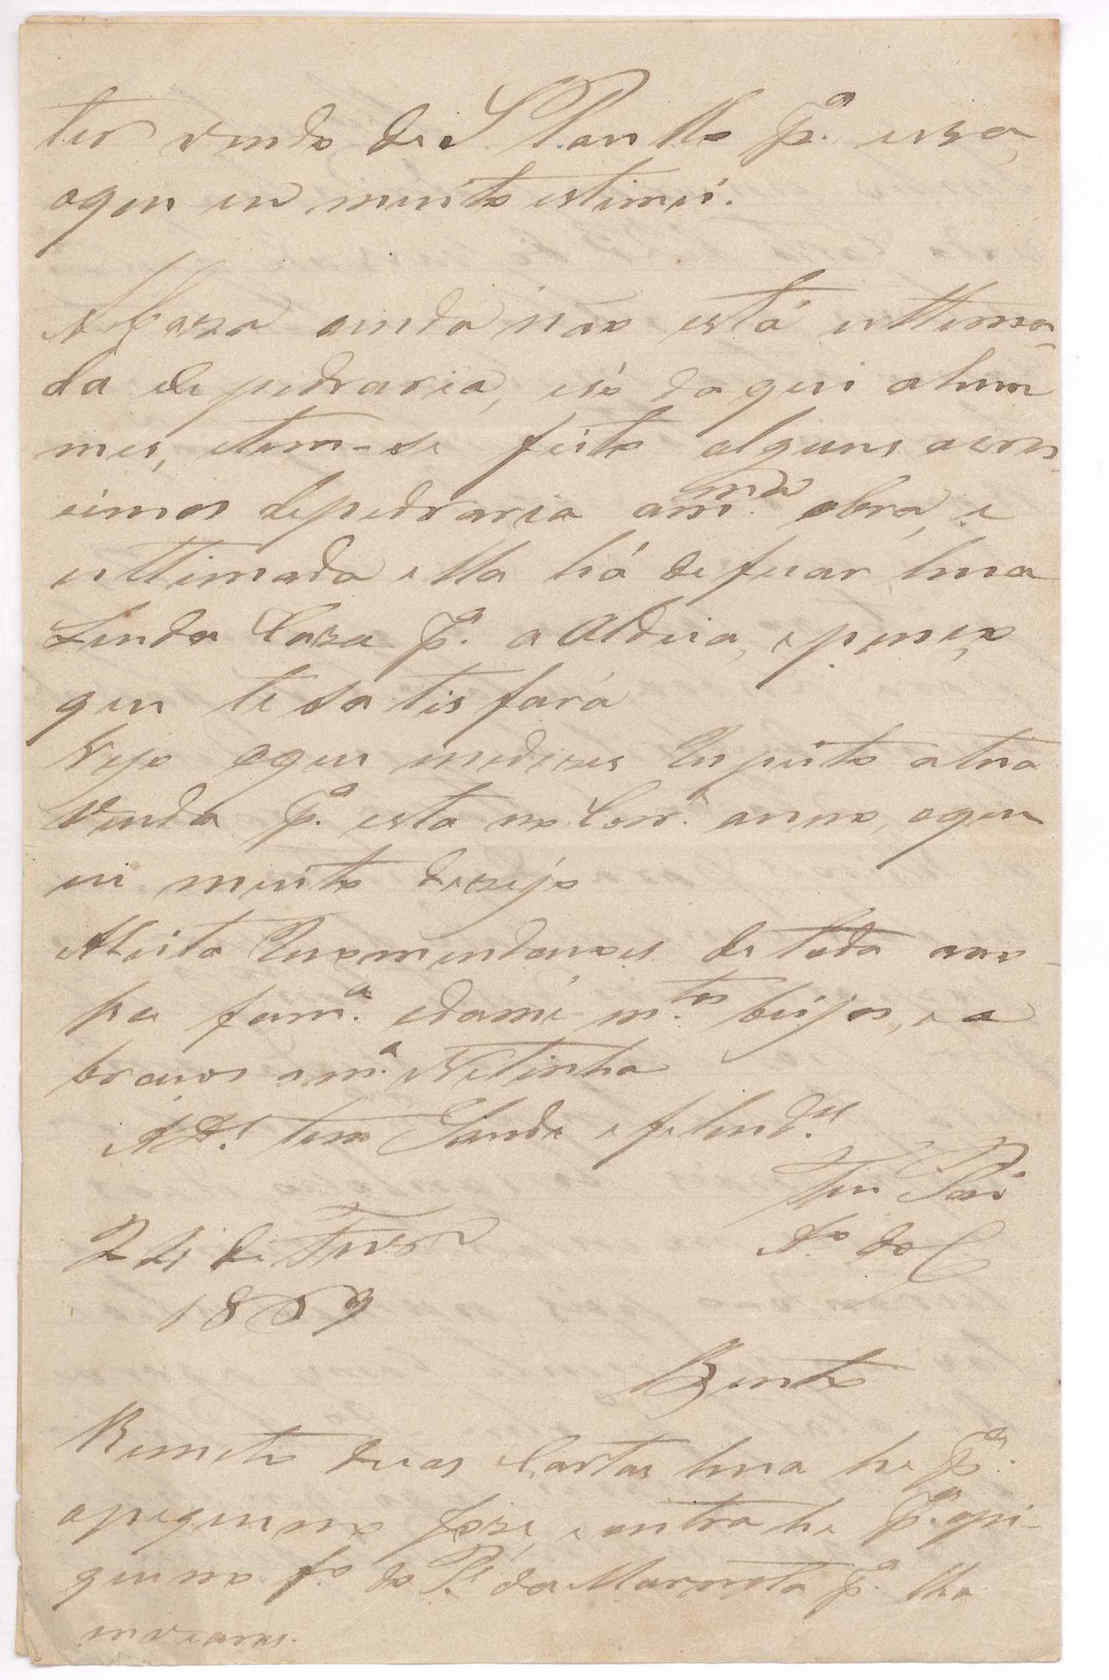 ter vindo de S. Paullo p.ª essa,
oque eu muito estimei.
A Caza ainda não está ulltima-
da de pedraria, e só daqui ahum
mes, etem-se feito alguns acres
cimos depedraria am.ma obra, e
ulltimada ella há de ficar huma
Linda Caza p.ª a Aldeia, epenço,
que te satisfará
Vejo oque medizes Respeito atua
Vinda p.ª esta no Corr.e anno, oque
eu muito dezejo
Aceita Recomendacoes de toda mi
ha fam.ª edamé m.tos beijos, e a
bracos am.ª Netinha
A D.s tem Saude e felicid.es
Teu Pai
A.º do C
24 de Fevr.º
1869
Bento
Remeto duas Cartas huma he p.ª
opequeno Jozé, e outra he p.ª ope-
queno f.º do P.e da Marinta p.ª lha
inviares.